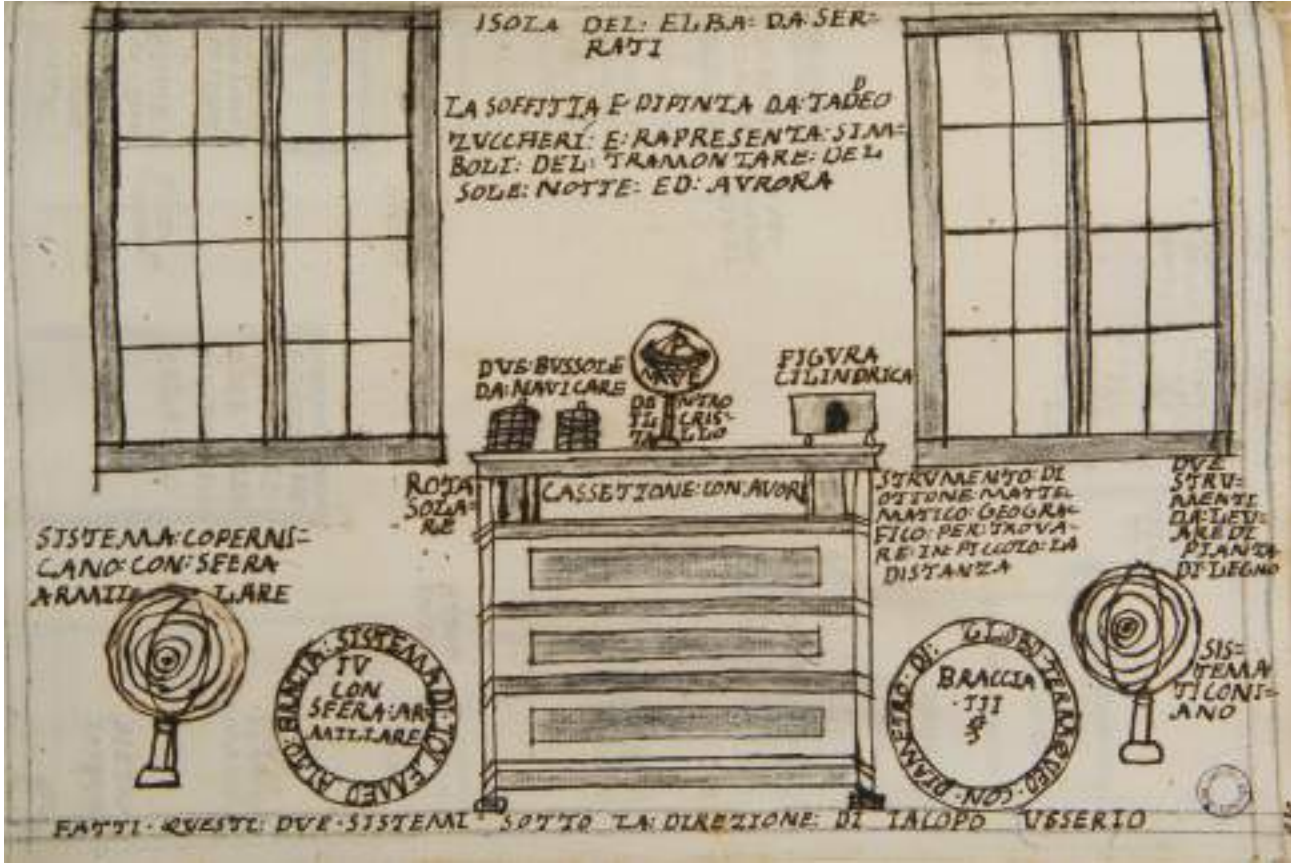 ISOLA DEL: ELBA: DA: SER=
RATI
LA SOFFITTA E DIPINTA DA: TADDEO
ZVCCHERI: E: RAPRESENTA: SIM=
BOLI: DEL: TRAMONTARE: DEL
SOLE: NOTTE: ED: AVRORA
DVE: BVSSOLE
DA: NAVICARE
NAVE
DENTRO
IL CRIS=
TALLO
FIGVRA
CILINDRICA
ROTA
SOLA=
RE
CASSETTONE: CON: AVORI
STRVMENTO: DI
OTTONE: MATTE=
MATICO: GEOGRA=
FICO: PER: TROVA=
RE: IN: PICCOLO: LA
DISTANZA
DVE
STRV=
MENTI
DA: LEV=
ARE DI
PIANTA
DI LEGNO
SISTEMA: COPERNI=
CANO: CON: SFERA
ARMILLARE
SISTEMA: DI: TOLEMEO ALTO: BRACIA:
IV
CON
SFERA: AR=
MILLARE
GLOBO: TERRAQVEO: CON: DIAMETRO: DI:
BRACCIA
III
SIS=
TEMA
TICONI=
ANO
FATTI· QVESTI: DVE· SISTEMI SOTTO LA: DIREZIONE: DI IACOPO VSSERIO